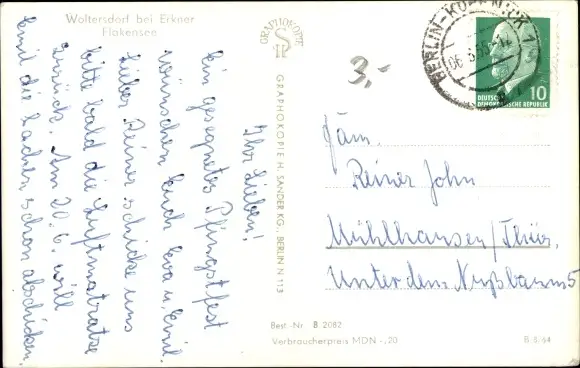 Woltersdorf bei Erkner
Flakensee
Ihr Lieben!
Ein gesegnetes Pfingstfest
wünschen Euch Eva u. Emil.
Lieber Reiner schicke uns
bitte bald die Luftmatratze
zurück. Am 20.6. will
Emil die Sachen schon abschicken.
GRAPHOKOPIE
GRAPHOKOPIE H. SANDER KG, BERLIN N 113
3,-
BERLIN-KÖPENICK 1
10
DEUTSCHE
DEMOKRATISCHE REPUBLIK
Fam.
Reiner John
Mühlhausen/Thür.
Unter den Nußbaum 5
Best.-Nr. B 2082
Verbraucherpreis MDN -,20
B 8/64